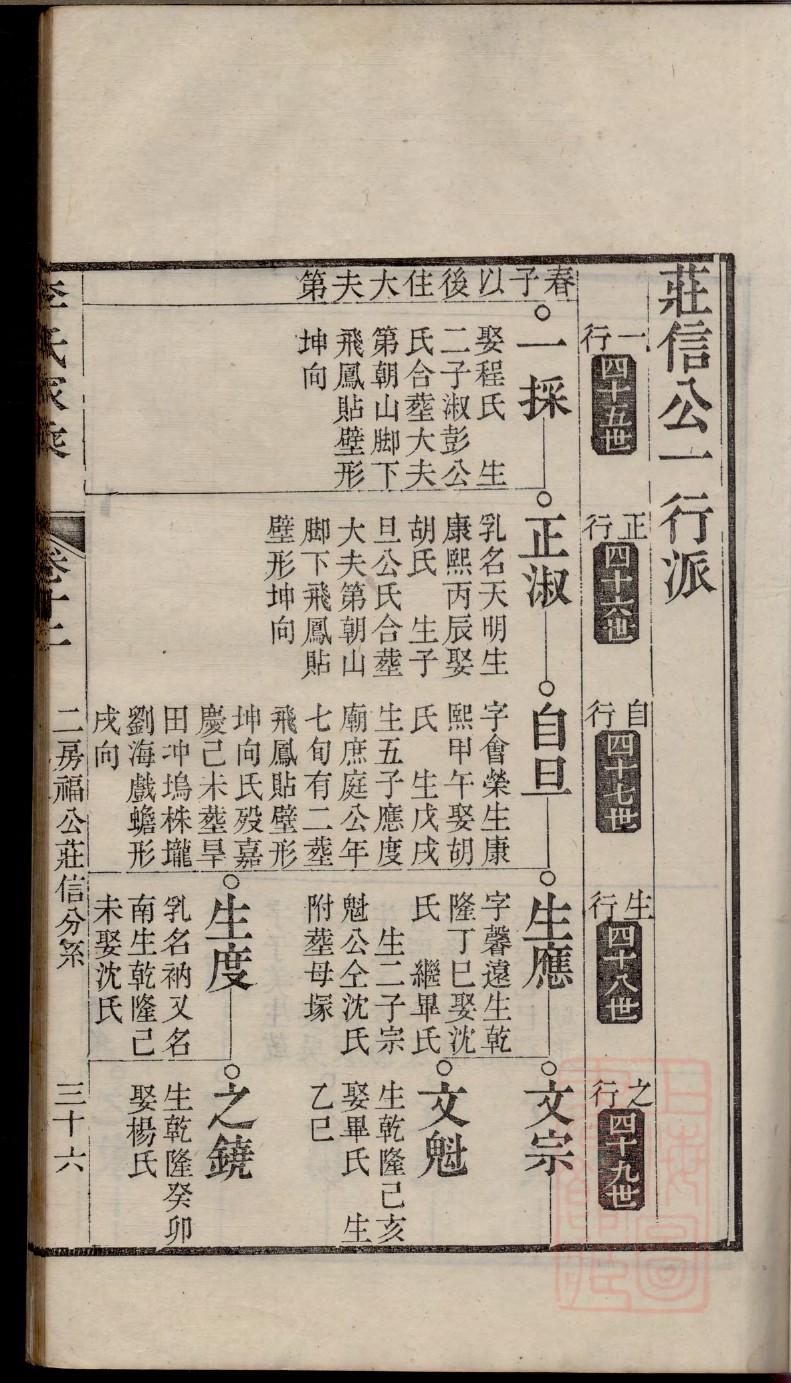 莊信公一行派
一行 四十五世
正行 四十六世
自行 四十七世
生行 四十八世
之行 四十九世
春子以後住大夫第
一採
娶程氏 生
二子淑彭公
氏合塟大夫
第朝山脚下
飛鳳貼壁形
坤向
正淑
乳名天明生
康熙丙辰娶
胡氏 生子
旦公氏合塟
大夫第朝山
脚下飛鳳貼
壁形坤向
自旦
字會榮生康
熙甲午娶胡
氏 生戊戌
生五子應度
廟庶庭公年
七旬有二塟
飛鳳貼壁形
坤向氏殁嘉
慶己未塟旱
田冲塢株壠
劉海戲蟾形
戌向
生應
字馨遠生乾
隆丁巳娶沈
氏 繼畢氏
生二子宗
魁公仝沈氏
附塟母塚
文宗
文魁
生乾隆己亥
娶畢氏 生
乙巳
生度
乳名衲又名
南生乾隆己
未娶沈氏
之鐃
生乾隆癸卯
娶楊氏
李氏家乘
卷十二
二房福公莊信分系
三十六